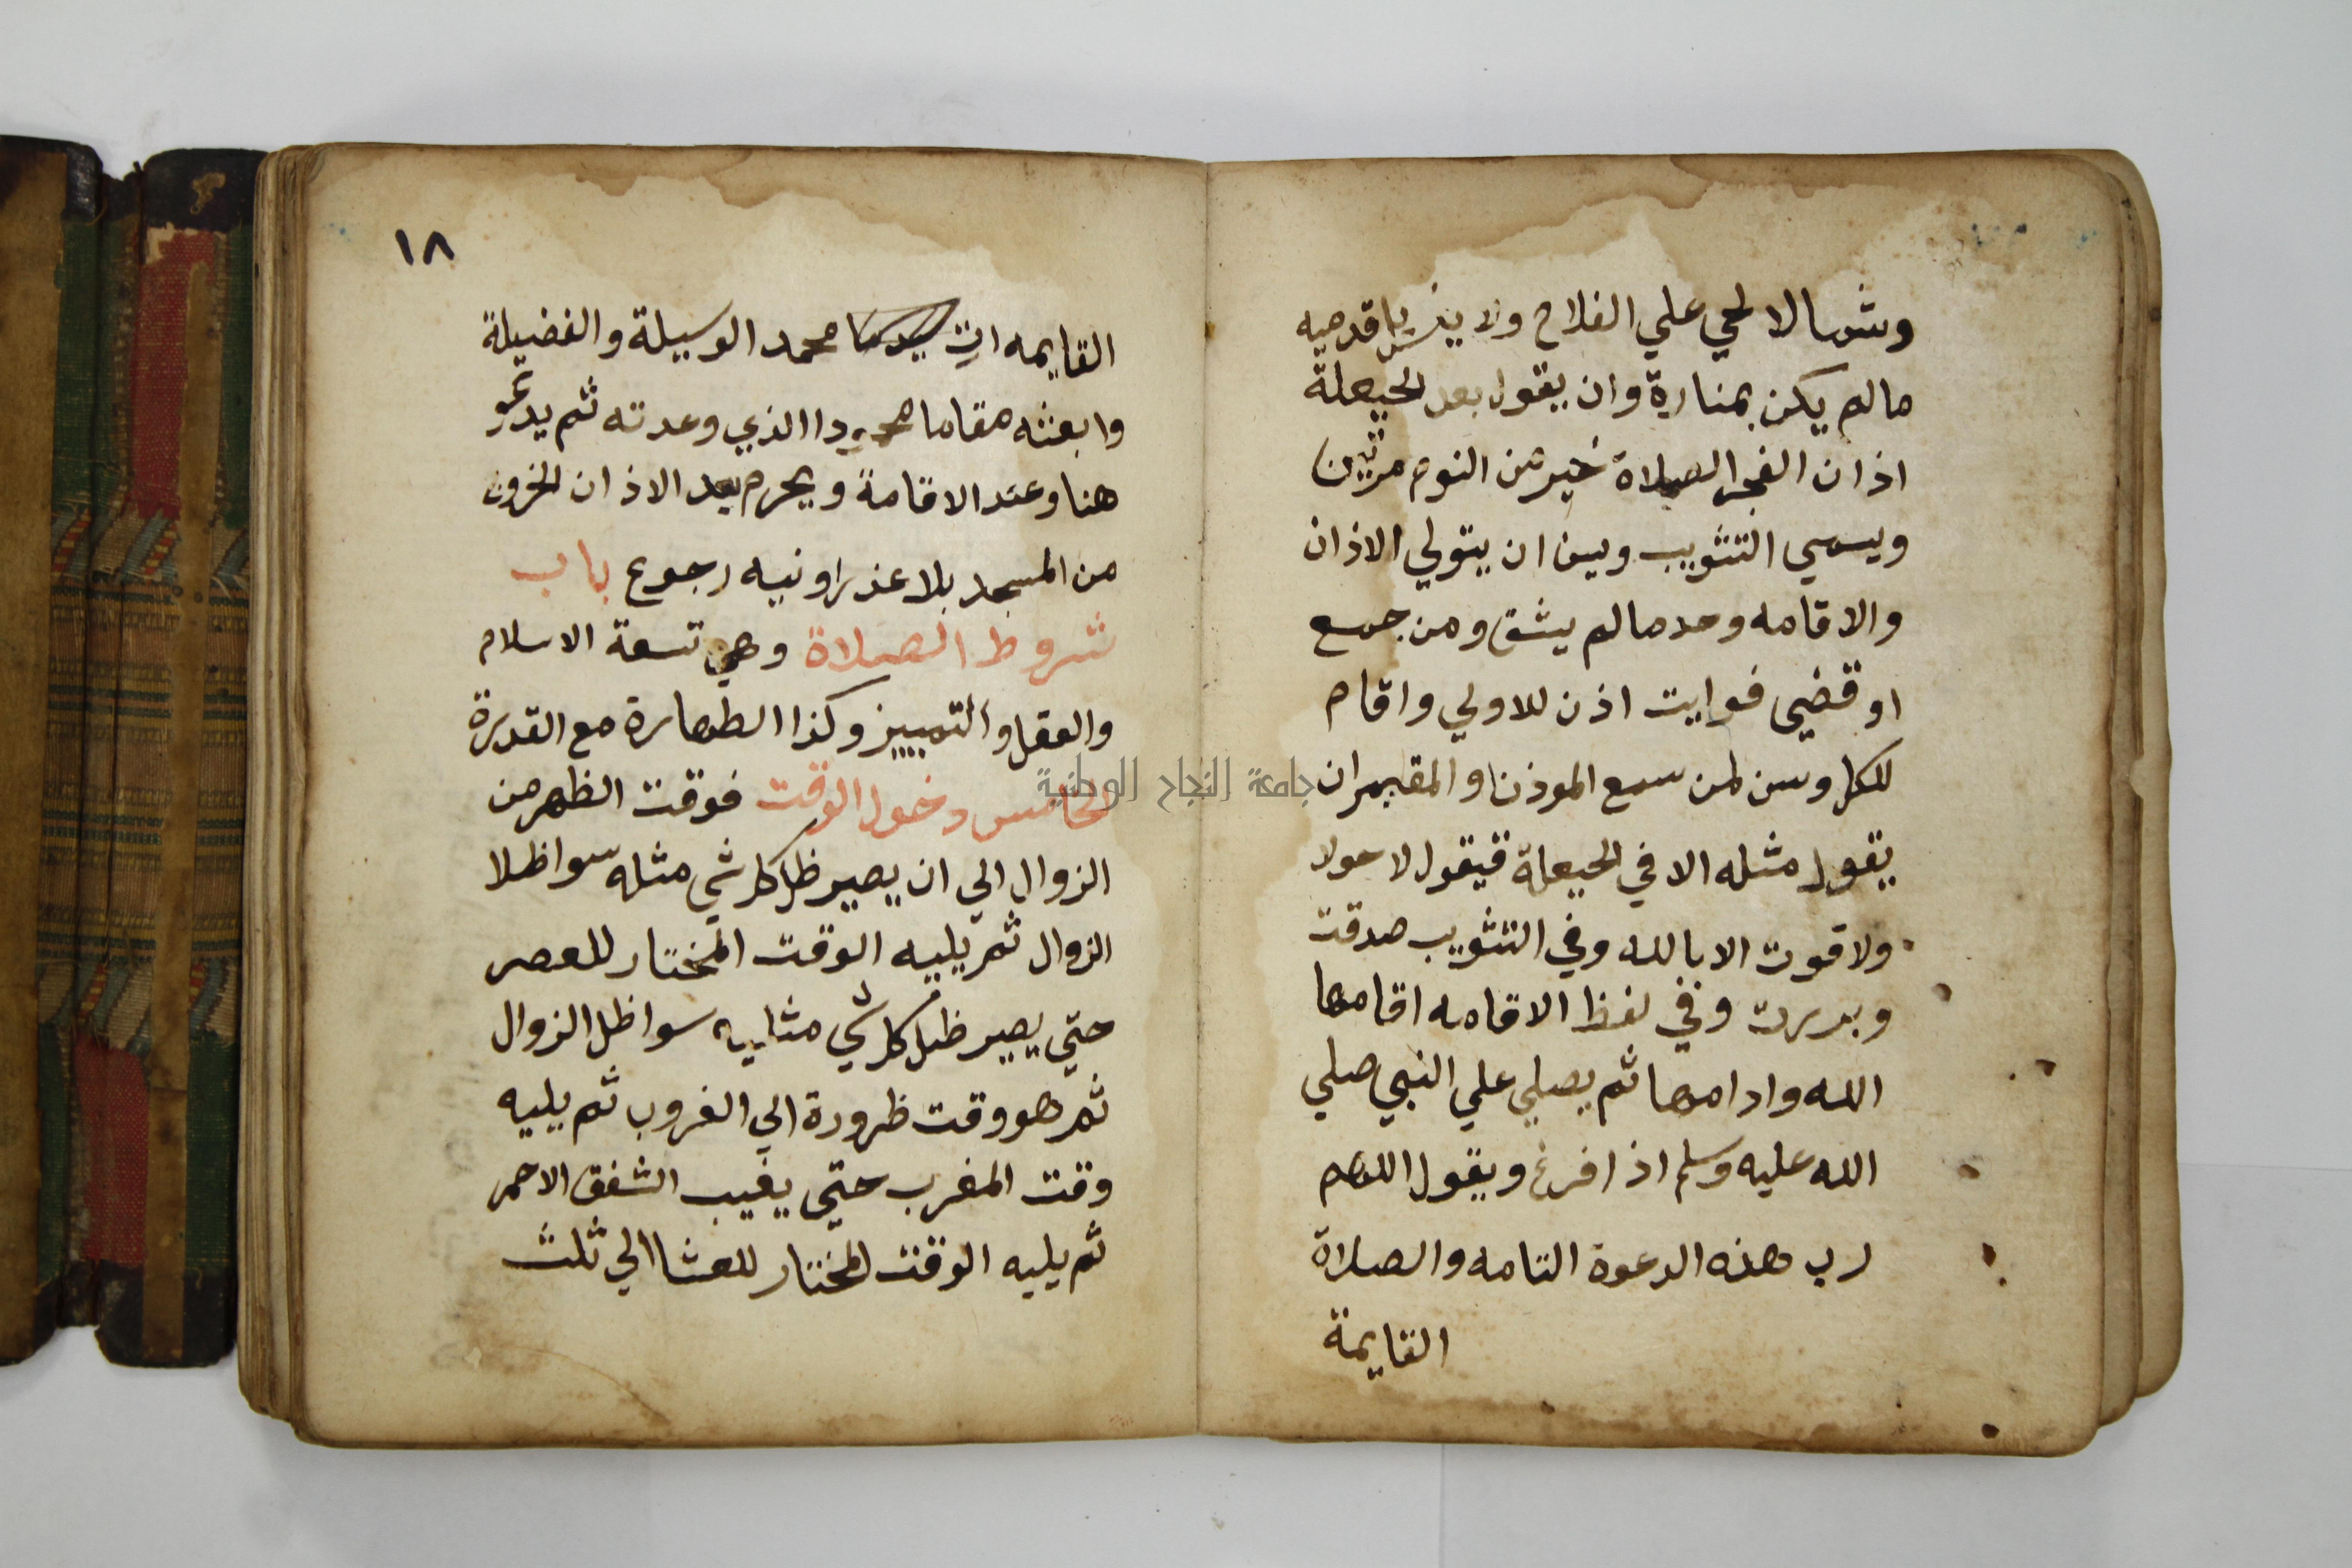 وشمالا لحي علي الفلاح ولا يزيل قدميه
مالم يكن بمنارة وان يقول بعد لحيعلة
اذان الفجر الصلاة خير من النوم مرتين
ويسمي التثويب ويسن ان يتولي الاذان
والاقامه وحد مالم يشق ومن جمع
او قضي فوايت اذن للاولي واقام
للكل وسن لمن سمع الموذن او المقيم ان
يقول مثله الا في الحيعلة فيقول لا حول
ولا قوت الا بالله وفي التثويب صدقت
وبررت وفي لفظ الاقامه اقامها
الله وادامها ثم يصلي علي النبي صلي
الله عليه وسلم اذا فرغ ويقول اللهم
رب هذه الدعوة التامه والصلاة
القايمة
١٨
القايمه ات محمد الوسيلة والفضيلة
وابعثه مقاما محمودا الذي وعدته ثم يدعو
هنا وعند الاقامة ويحرم بعد الاذان الخروج
من المسجد بلا عذر او نيه رجوع باب
شروط الصلاة وهي تسعة الاسلام
والعقل والتمييز وكذا الطهارة مع القدرة
الخامس دخول الوقت فوقت الظهر من
الزوال الي ان يصير ظل كل شي مثله سوا ظلا
الزوال ثم يليه الوقت المختار للعصر
حتي يصير ظل كل شي مثليه سوا ظل الزوال
ثم هو وقت ظرورة الي الغروب ثم يليه
وقت المغرب حتي يغيب الشفق الاحمر
ثم يليه الوقت المختار للعشا الي ثلث
جامعة النجاح الوطنية